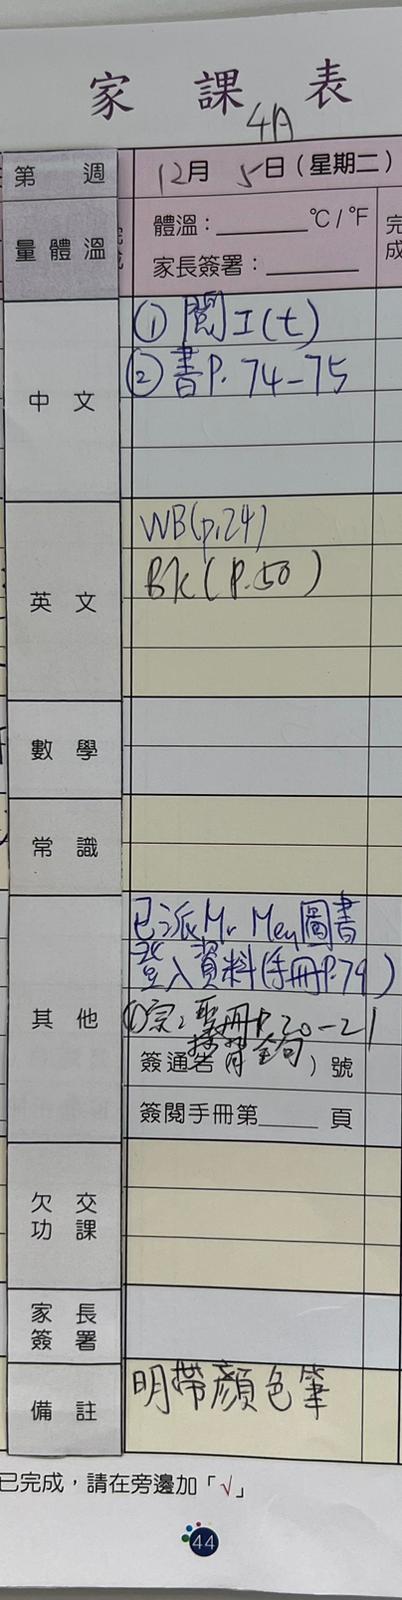 家課表
4A
第 週 12月 5日(星期二)
量體溫 體溫：______°C/°F 完成
家長簽署：______
中文 ① 閱工(七)
② 書P. 74-75
英文 WB(p.24)
BK(P.50)
數學
常識
其他 已派Mr Men圖書
登入資料(手冊P.79)
① 宗：聖冊P.20-21
簽通告 ）號
簽閱手冊第____頁
欠交功課
家長簽署
備註 明帶顏色筆
已完成，請在旁邊加「√」
44